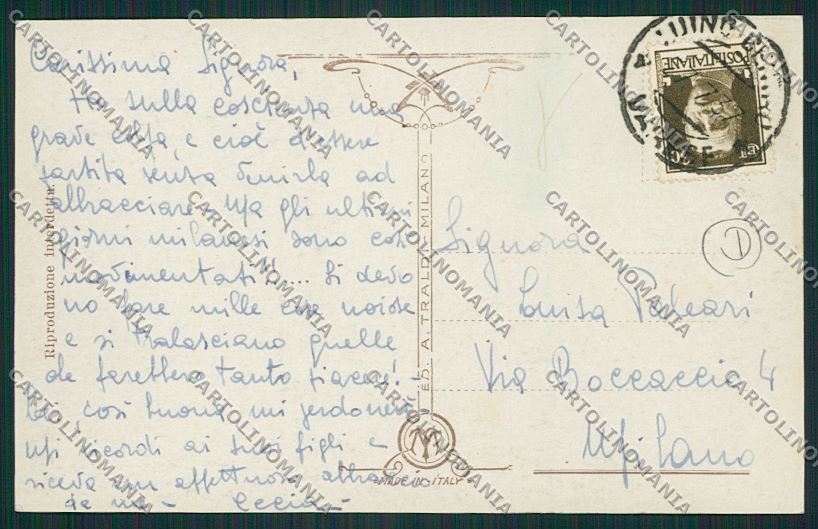 Carissima Signora,
Ho sulla coscienza una
grave colpa, e cioè d'essere
partita senza venirla ad
abbracciare. Ma gli ultimi
giorni milanesi sono così
movimentati!.... Si devo
no fare mille cose noiose
e si tralasciano quelle
che farebbero tanto piacere! -
Lei così buona mi perdonerà
Mi ricordi ai suoi figli e
riceva un affettuoso abbraccio
da me -
Riproduzione interdetta.
ED. A. TRALDI - MILANO
MADE IN ITALY
POSTE ITALIANE
LUINO
VARESE
Signora
Luisa Paleari
Via Boccaccio 4
Milano
CARTOLINOMANIA